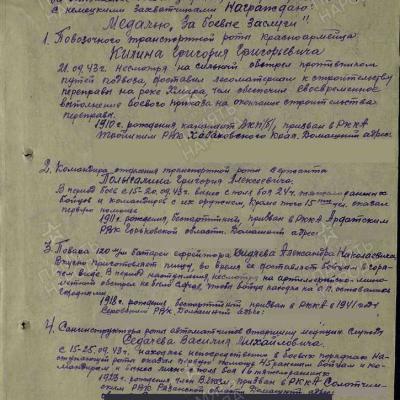 с немецкими захватчиками Награждаю:
Медалью „За боевые заслуги"
1. Повозочного транспортной роты красноармейца
Килина Григория Григорьевича
21.09.43г. Несмотря на сильный обстрел противником
путей подвоза, доставил лесоматериал к строительству
переправы на реке Хмара, чем обеспечил своевременное
выполнение боевого приказа на окончание строительства
переправы.
1910 г. рождения, кандидат ВКП(б), призван в РККА
РВК Хабаровского края. Домашний адрес:
2. Командира отделения транспортной роты сержанта
Григория Алексеевича.
В период боев с 15-20.09.43г. вынес с поля боя 24
бойцов и командиров с их оружием, кроме того 15 оказал
первую помощь
1911 г. рождения, беспартийный, призван в РККА Ардатовским
РВК Горьковской области. Домашний адрес:
3. Повара 120 м/м батареи ефрейтора Александра Николаевича
Вкусно приготовляет пищу во время ее доставляет бойцам в горя-
чем виде. В период наступления, несмотря на артиллерийско-мино-
метный обстрел не был случая, чтобы бойцы когда
1918 г. рождения, беспартийный, призван в РККА в 1941 году
РВК. Домашний адрес:
4. Санинструктора роты автоматчиков старшину медицин. службы
Седаева Василия Михайловича.
с 15-25.09.43г. находясь непосредственно в боевых порядках на-
ступающей роты оказал первую помощь 45 раненым бойцам и ко-
мандирам и вынес лично с поля боя 16 тяжелораненых
1923 г. рождения, член ВЛКСМ, призван в РККА Солотчин-
ским РВК Рязанской области. Домашний адрес: